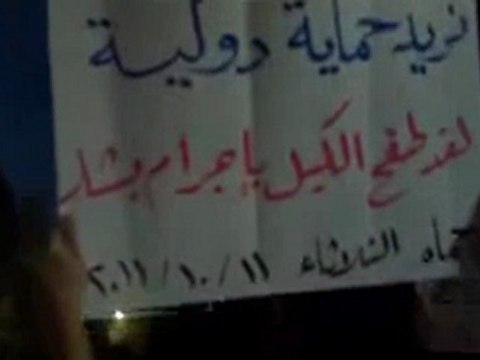 نريد حماية دولية
لقد طفح الكيل بإجرام بشار
حماه الثلاثاء ١١/١٠/٢٠١١